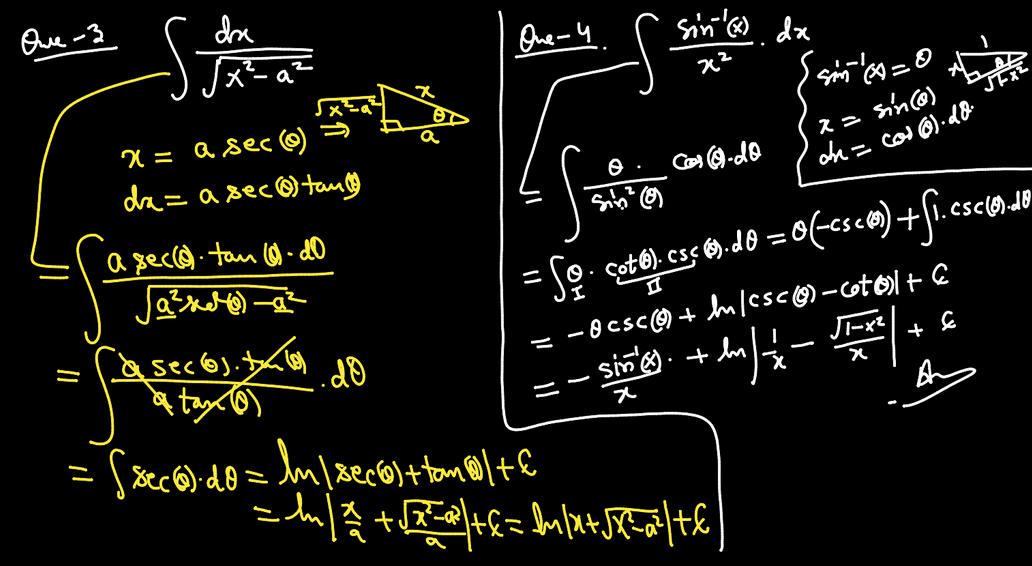 Que-3 ∫ dx / √(x² - a²)
x = a sec(θ) ⇒ √(x²-a²) x θ a
dx = a sec(θ) tan(θ)
= ∫ a sec(θ)·tan(θ)·dθ / √(a² sec²(θ) - a²)
= ∫ a sec(θ)·tan(θ) / a tan(θ) .dθ
= ∫ sec(θ)·dθ = ln|sec(θ)+tan(θ)|+C
= ln|x/a + √(x²-a²)/a|+C = ln|x+√(x²-a²)|+C
Que-4. ∫ sin⁻¹(x) / x² . dx
sin⁻¹(x) = θ 1 x θ √1-x²
x = sin(θ)
dx = cos(θ)·dθ
= ∫ θ· / sin²(θ) cos(θ)·dθ
= ∫ θ· cot(θ)·csc(θ)·dθ = θ(-csc(θ)) + ∫1·csc(θ)·dθ
I II
= -θ csc(θ) + ln|csc(θ) - cot(θ)| + C
= - sin⁻¹(x)/x · + ln|1/x - √(1-x²)/x| + C